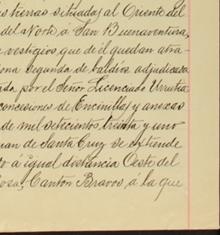 tierras situadas al Oriente del
del Norte, á San Buenaventura,
vestigios, que de él quedan atra-
ona segunda de baldíos adjudicada
ada por el Señor Licenciado Urrutia
concesiones de Encinillas y anexas
de mil setecientos, treinta y uno
uan de Santa Cruz se estiende
á igual distancia Oeste del
osa, Canton Bravos, á la que